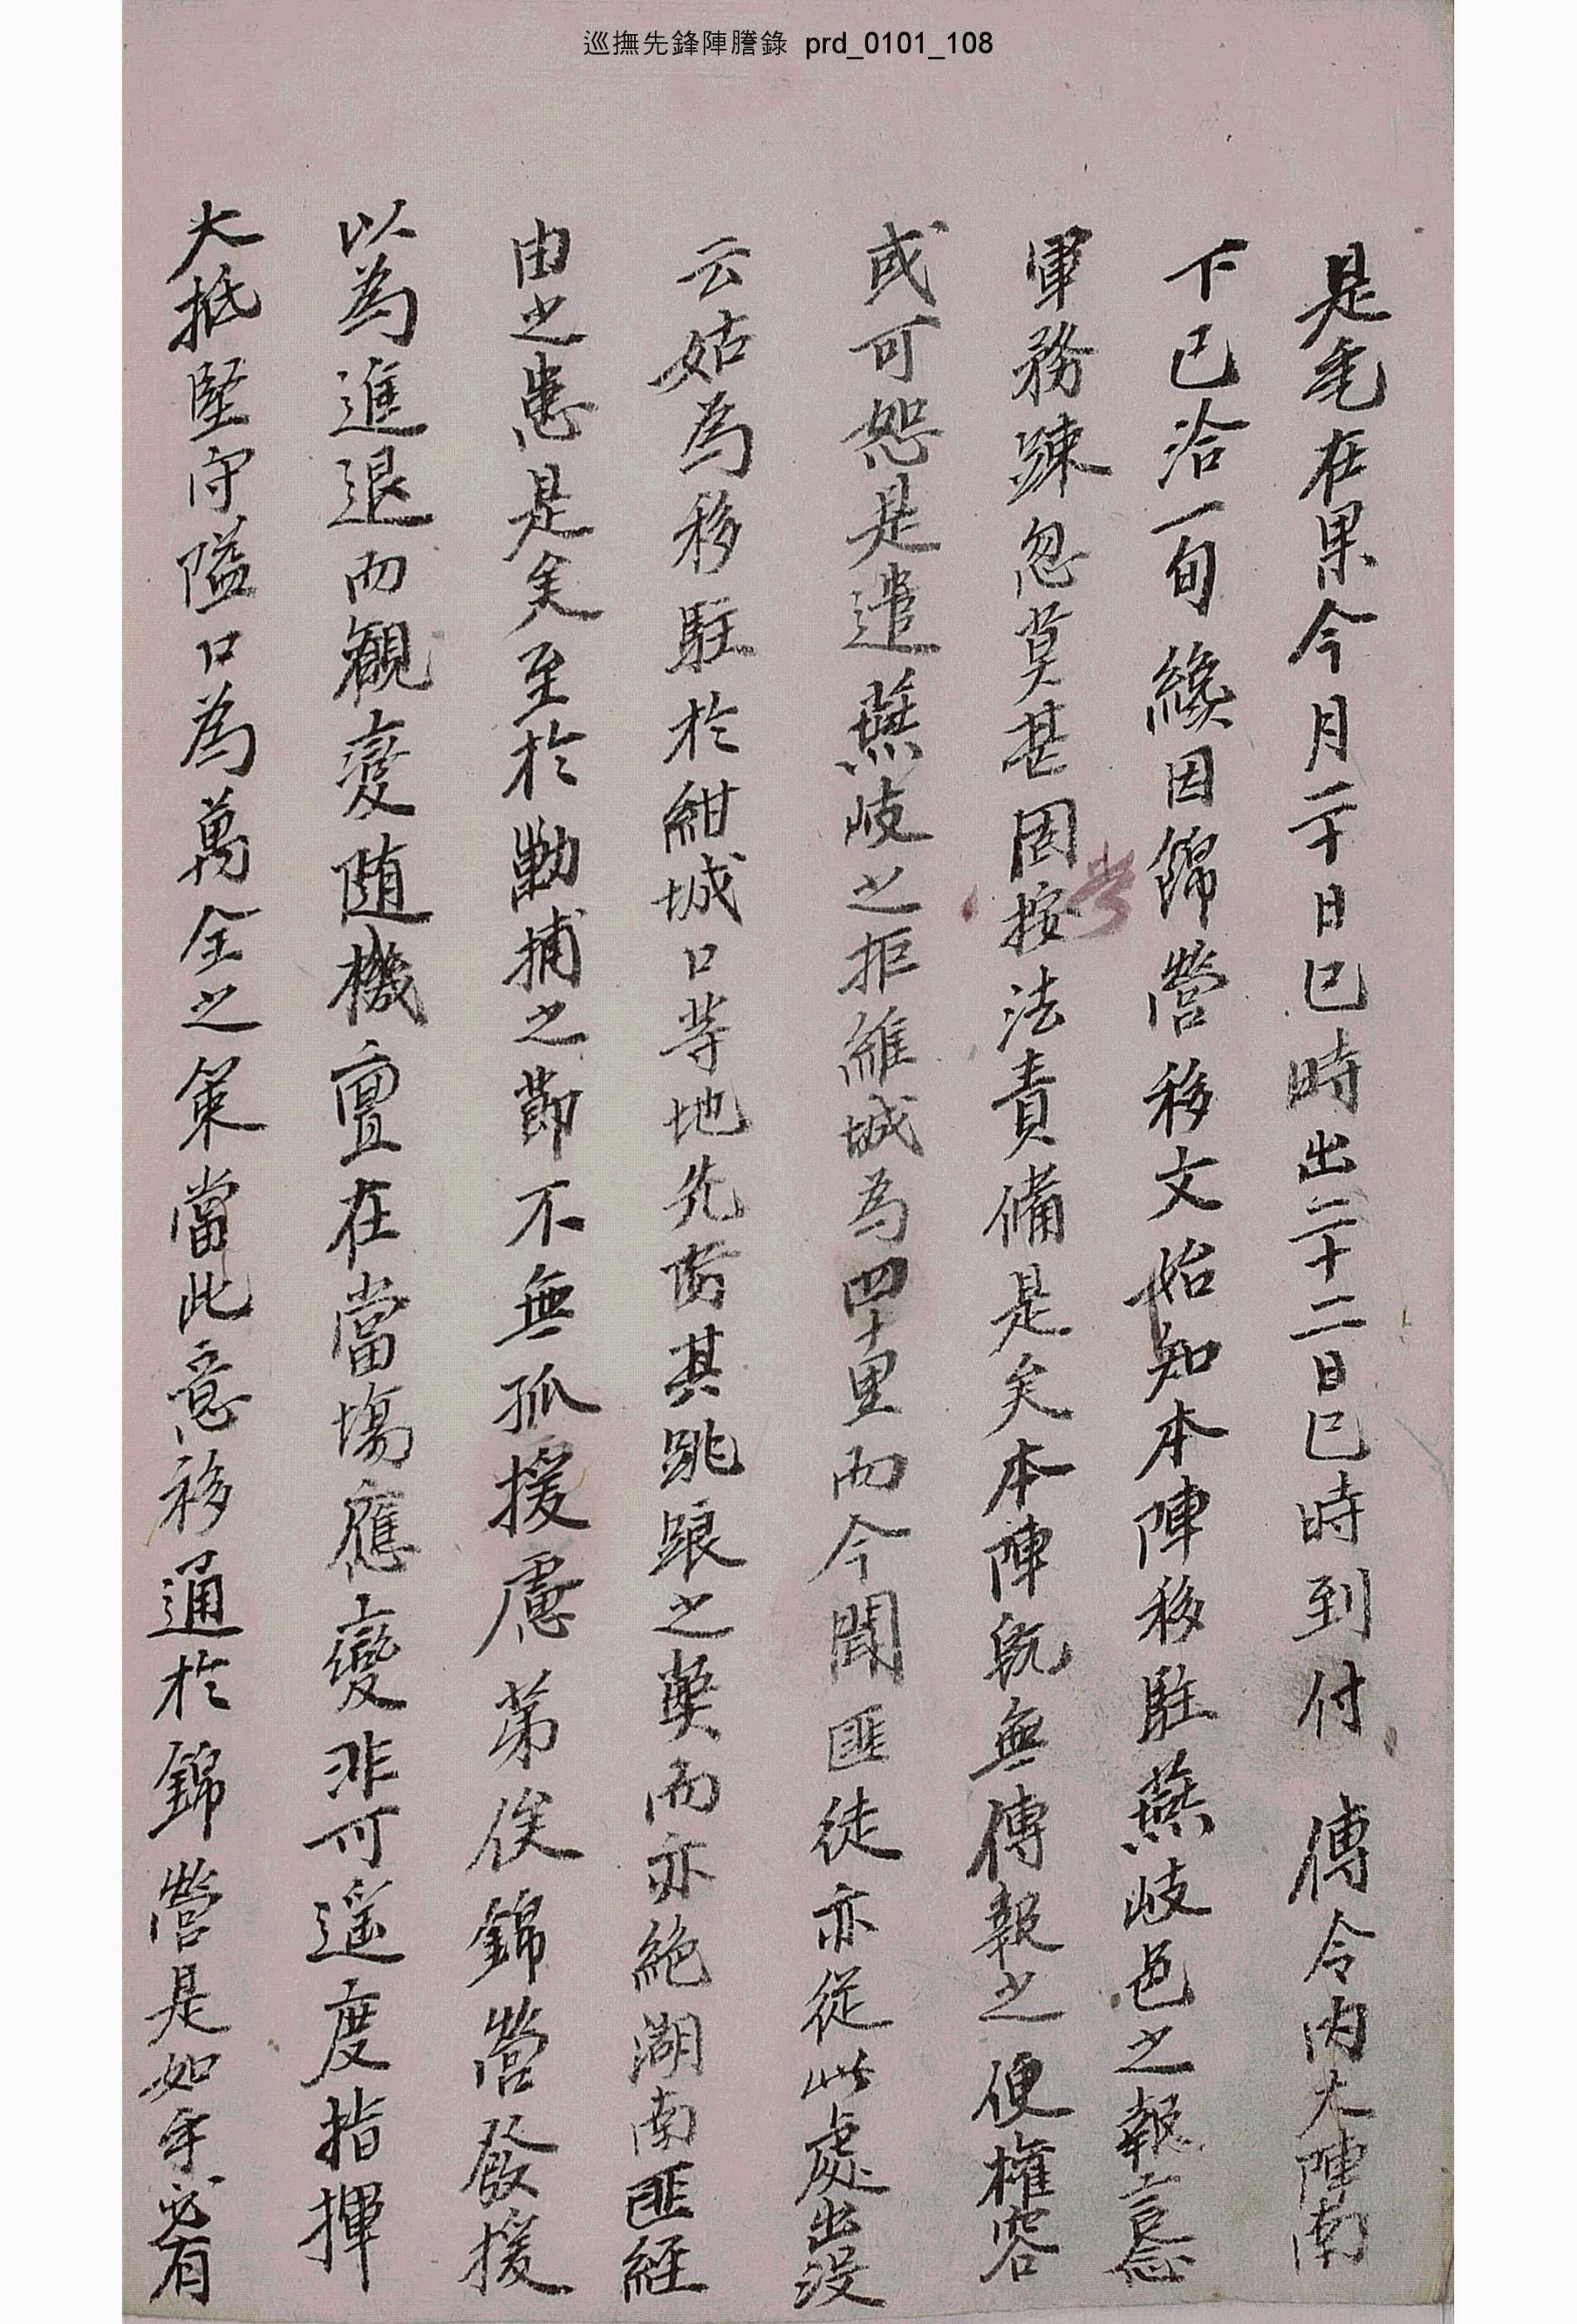 巡撫先鋒陣謄錄 prd_0101_108
是乎在果今月二十日巳時出二十二日巳時到付 傳令內大陣南
下已洽一旬緣因錦營移文始知本陣移駐燕岐邑之報言念
軍務踈忽莫甚固當按法責備是矣本陣旣無傳報之便權容
或可恕是遣燕岐之拒維城爲四十里而今聞匪徒亦從此處出沒
云姑爲移駐於紺城口等地先防其跳踉之獘而亦絶湖南匪經
由之患是矣至於勦捕之節不無孤援慮第俟錦營發援
以爲進退而觀變隨機亶在當場應變非可遥度指揮
大抵堅守隘口爲萬全之策當此意移通於錦營是如乎必有